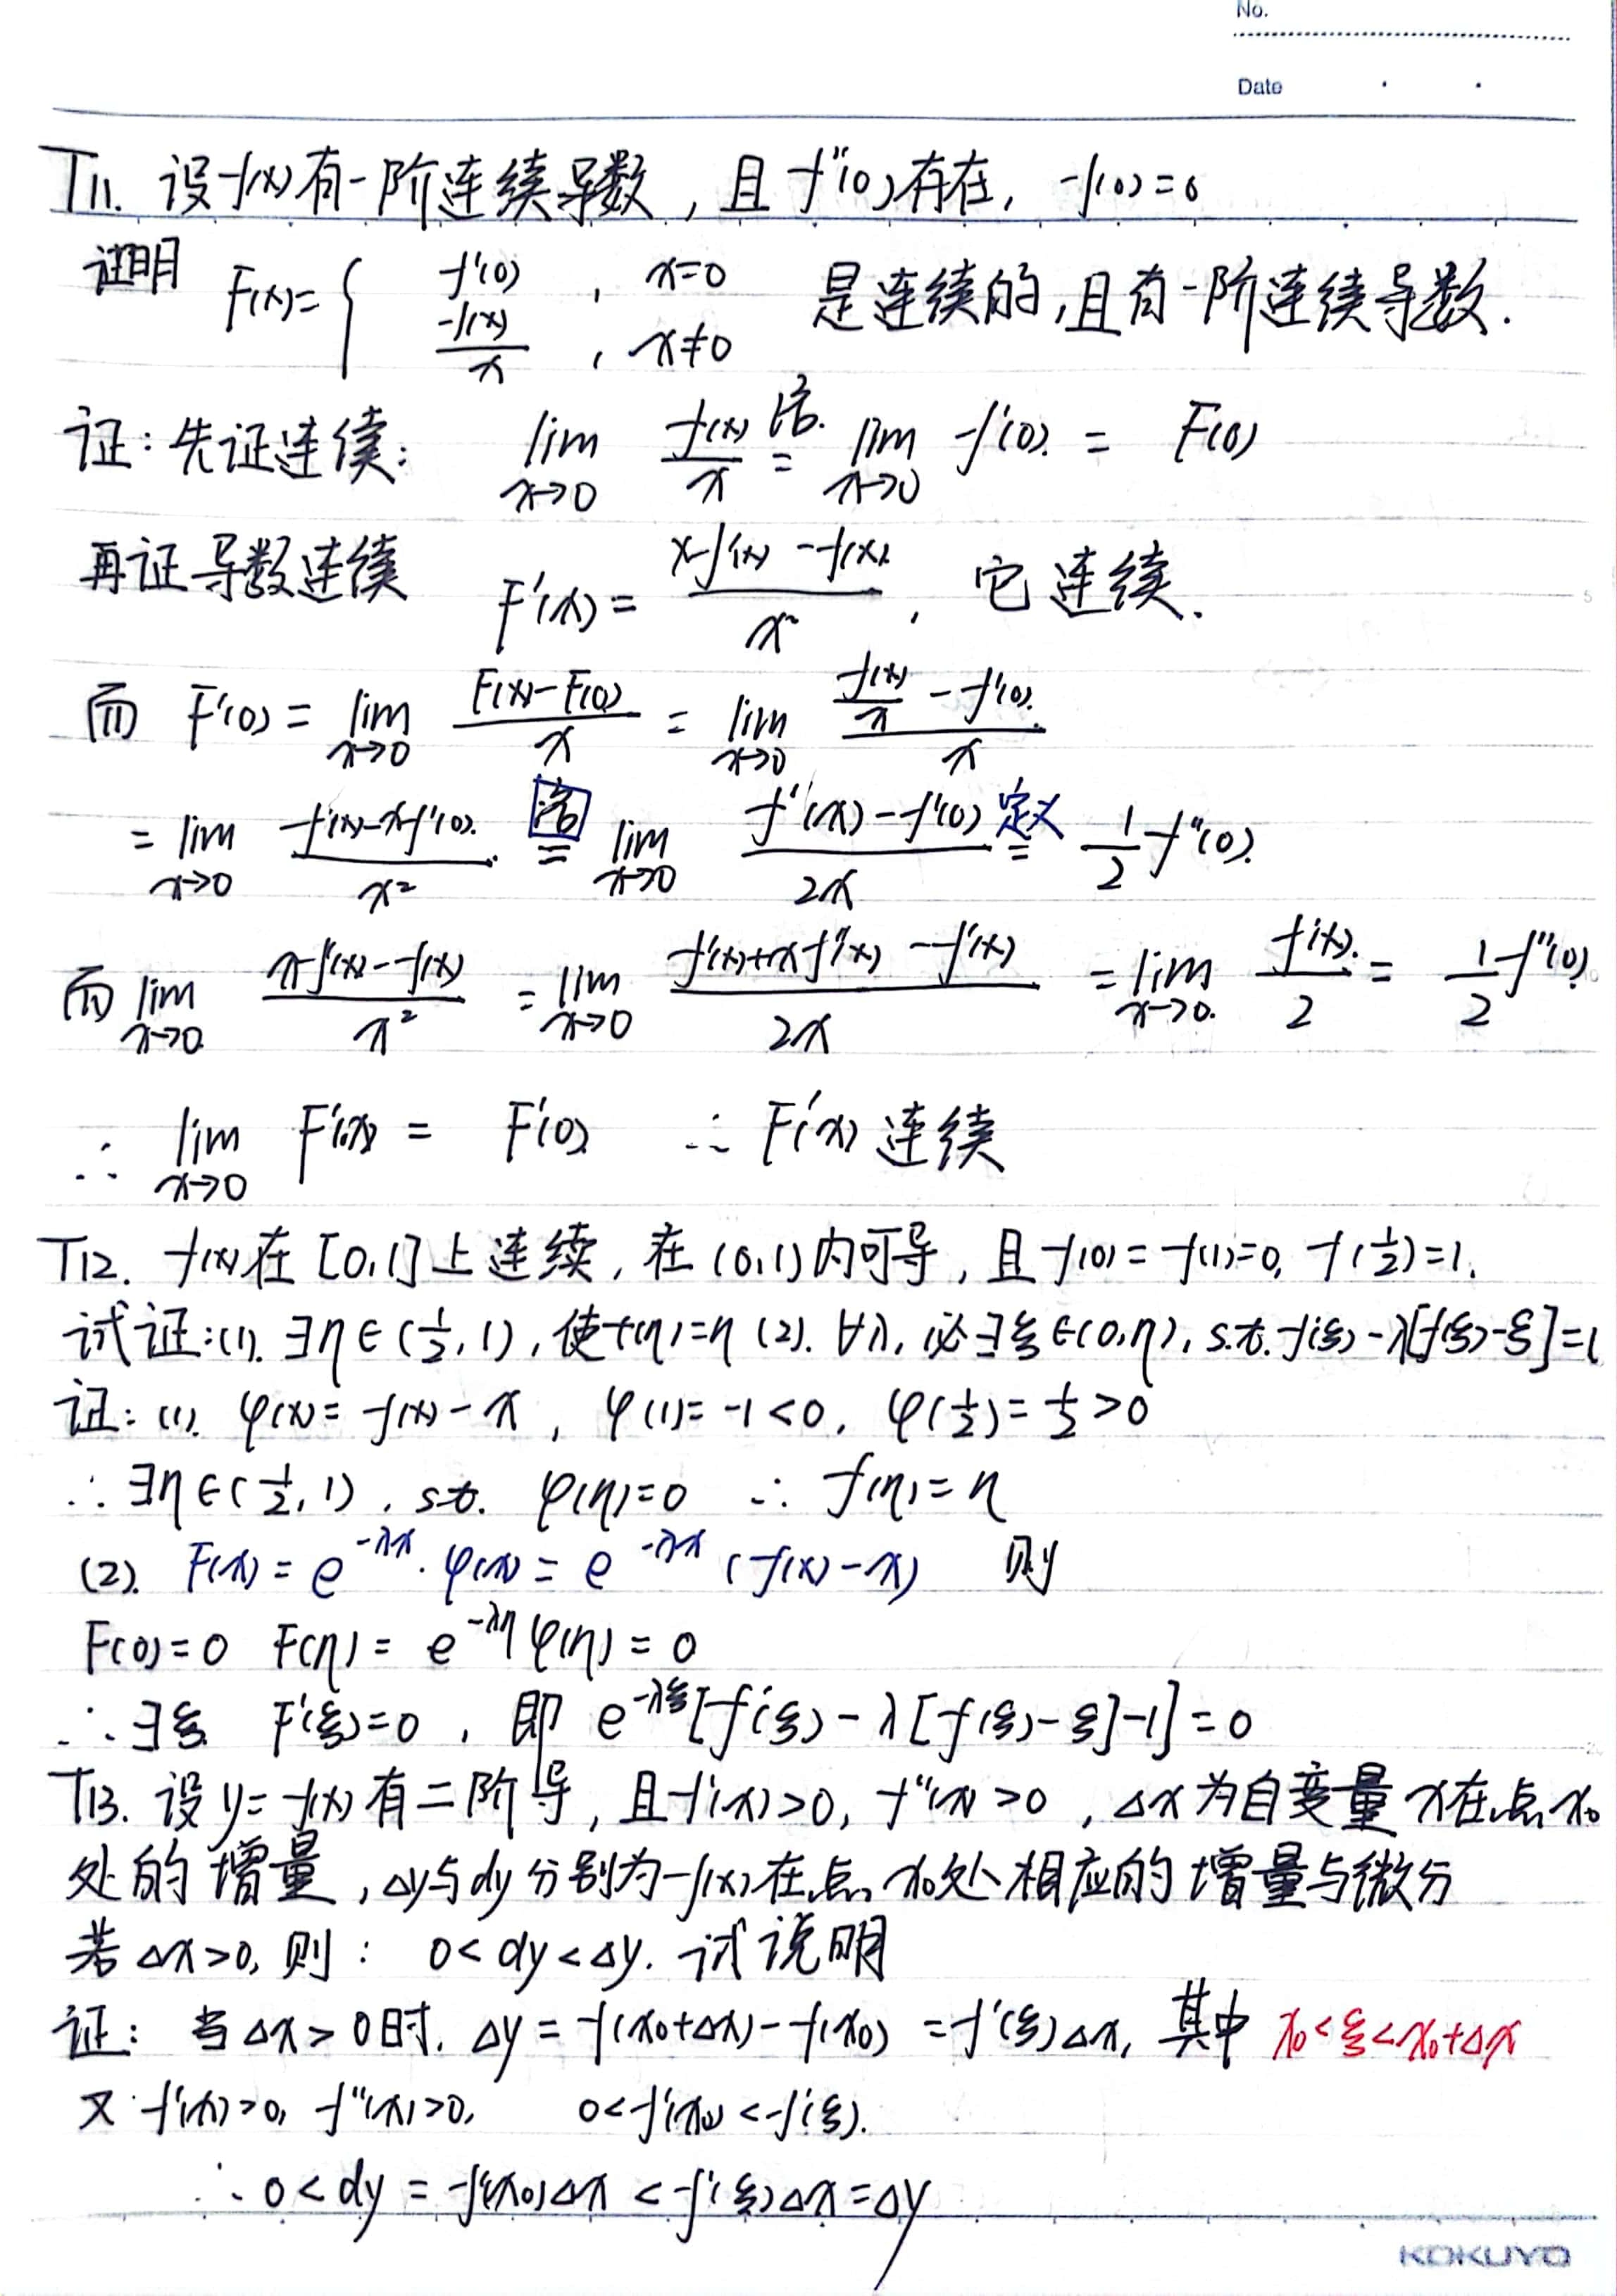 No.
Date
T11. 设f(x)有一阶连续导数，且f''(0)存在，f(0)=0
证明 F(x)={ f'(0)，x=0 ; f(x)/x，x≠0 是连续的，且有一阶连续导数.
证：先证连续： lim_{x→0} f(x)/x 洛= lim_{x→0} f'(0) = F(0)
再证导数连续 F'(x)= (xf'(x)-f(x))/x²，它连续.
而 F'(0)= lim_{x→0} (F(x)-F(0))/x = lim_{x→0} (f(x)/x - f'(0))/x
= lim_{x→0} (f(x)-xf'(0))/x² 洛= lim_{x→0} (f'(x)-f'(0))/2x 定义= 1/2 f''(0).
而 lim_{x→0} (xf'(x)-f(x))/x² = lim_{x→0} (f'(x)+xf''(x)-f'(x))/2x = lim_{x→0} f''(x)/2 = 1/2 f''(0)
∴ lim_{x→0} F'(x) = F'(0) ∴ F'(x) 连续
T12. f(x)在[0,1]上连续，在(0,1)内可导，且f(0)=f(1)=0, f(1/2)=1.
试证：(1). ∃η∈(1/2,1)，使f(η)=η (2). ∀λ，必∃ξ∈(0,η)，s.t. f'(ξ)-λ[f(ξ)-ξ]=1
证：(1). φ(x)=f(x)-x，φ(1)=-1<0，φ(1/2)=1/2>0
∴ ∃η∈(1/2,1)，s.t. φ(η)=0 ∴ f(η)=η
(2). F(x)=e^{-λx}·φ(x)=e^{-λx}(f(x)-x) 则
F(0)=0 F(η)=e^{-λη}φ(η)=0
∴ ∃ξ F'(ξ)=0，即 e^{-λξ}[f'(ξ)-λ[f(ξ)-ξ]-1]=0
T13. 设y=f(x)有二阶导，且f'(x)>0，f''(x)>0，Δx为自变量x在点x₀
处的增量，Δy与dy分别为f(x)在点x₀处相应的增量与微分
若Δx>0，则：0<dy<Δy. 试说明
证：当Δx>0时，Δy=f(x₀+Δx)-f(x₀)=f'(ξ)Δx，其中 x₀<ξ<x₀+Δx
又f'(x)>0，f''(x)>0， 0<f'(x₀)<f'(ξ).
∴ 0<dy=f'(x₀)Δx<f'(ξ)Δx=Δy
KOKUYO